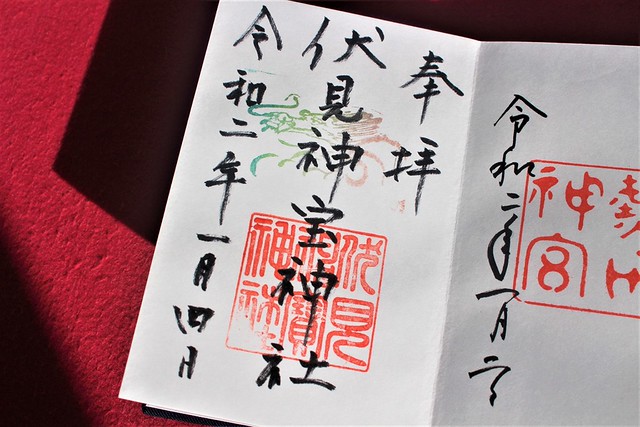 神宮
令和二年一月二日
奉拝
伏見神宝神社
令和二年一月四日
伏見
神寶
神社